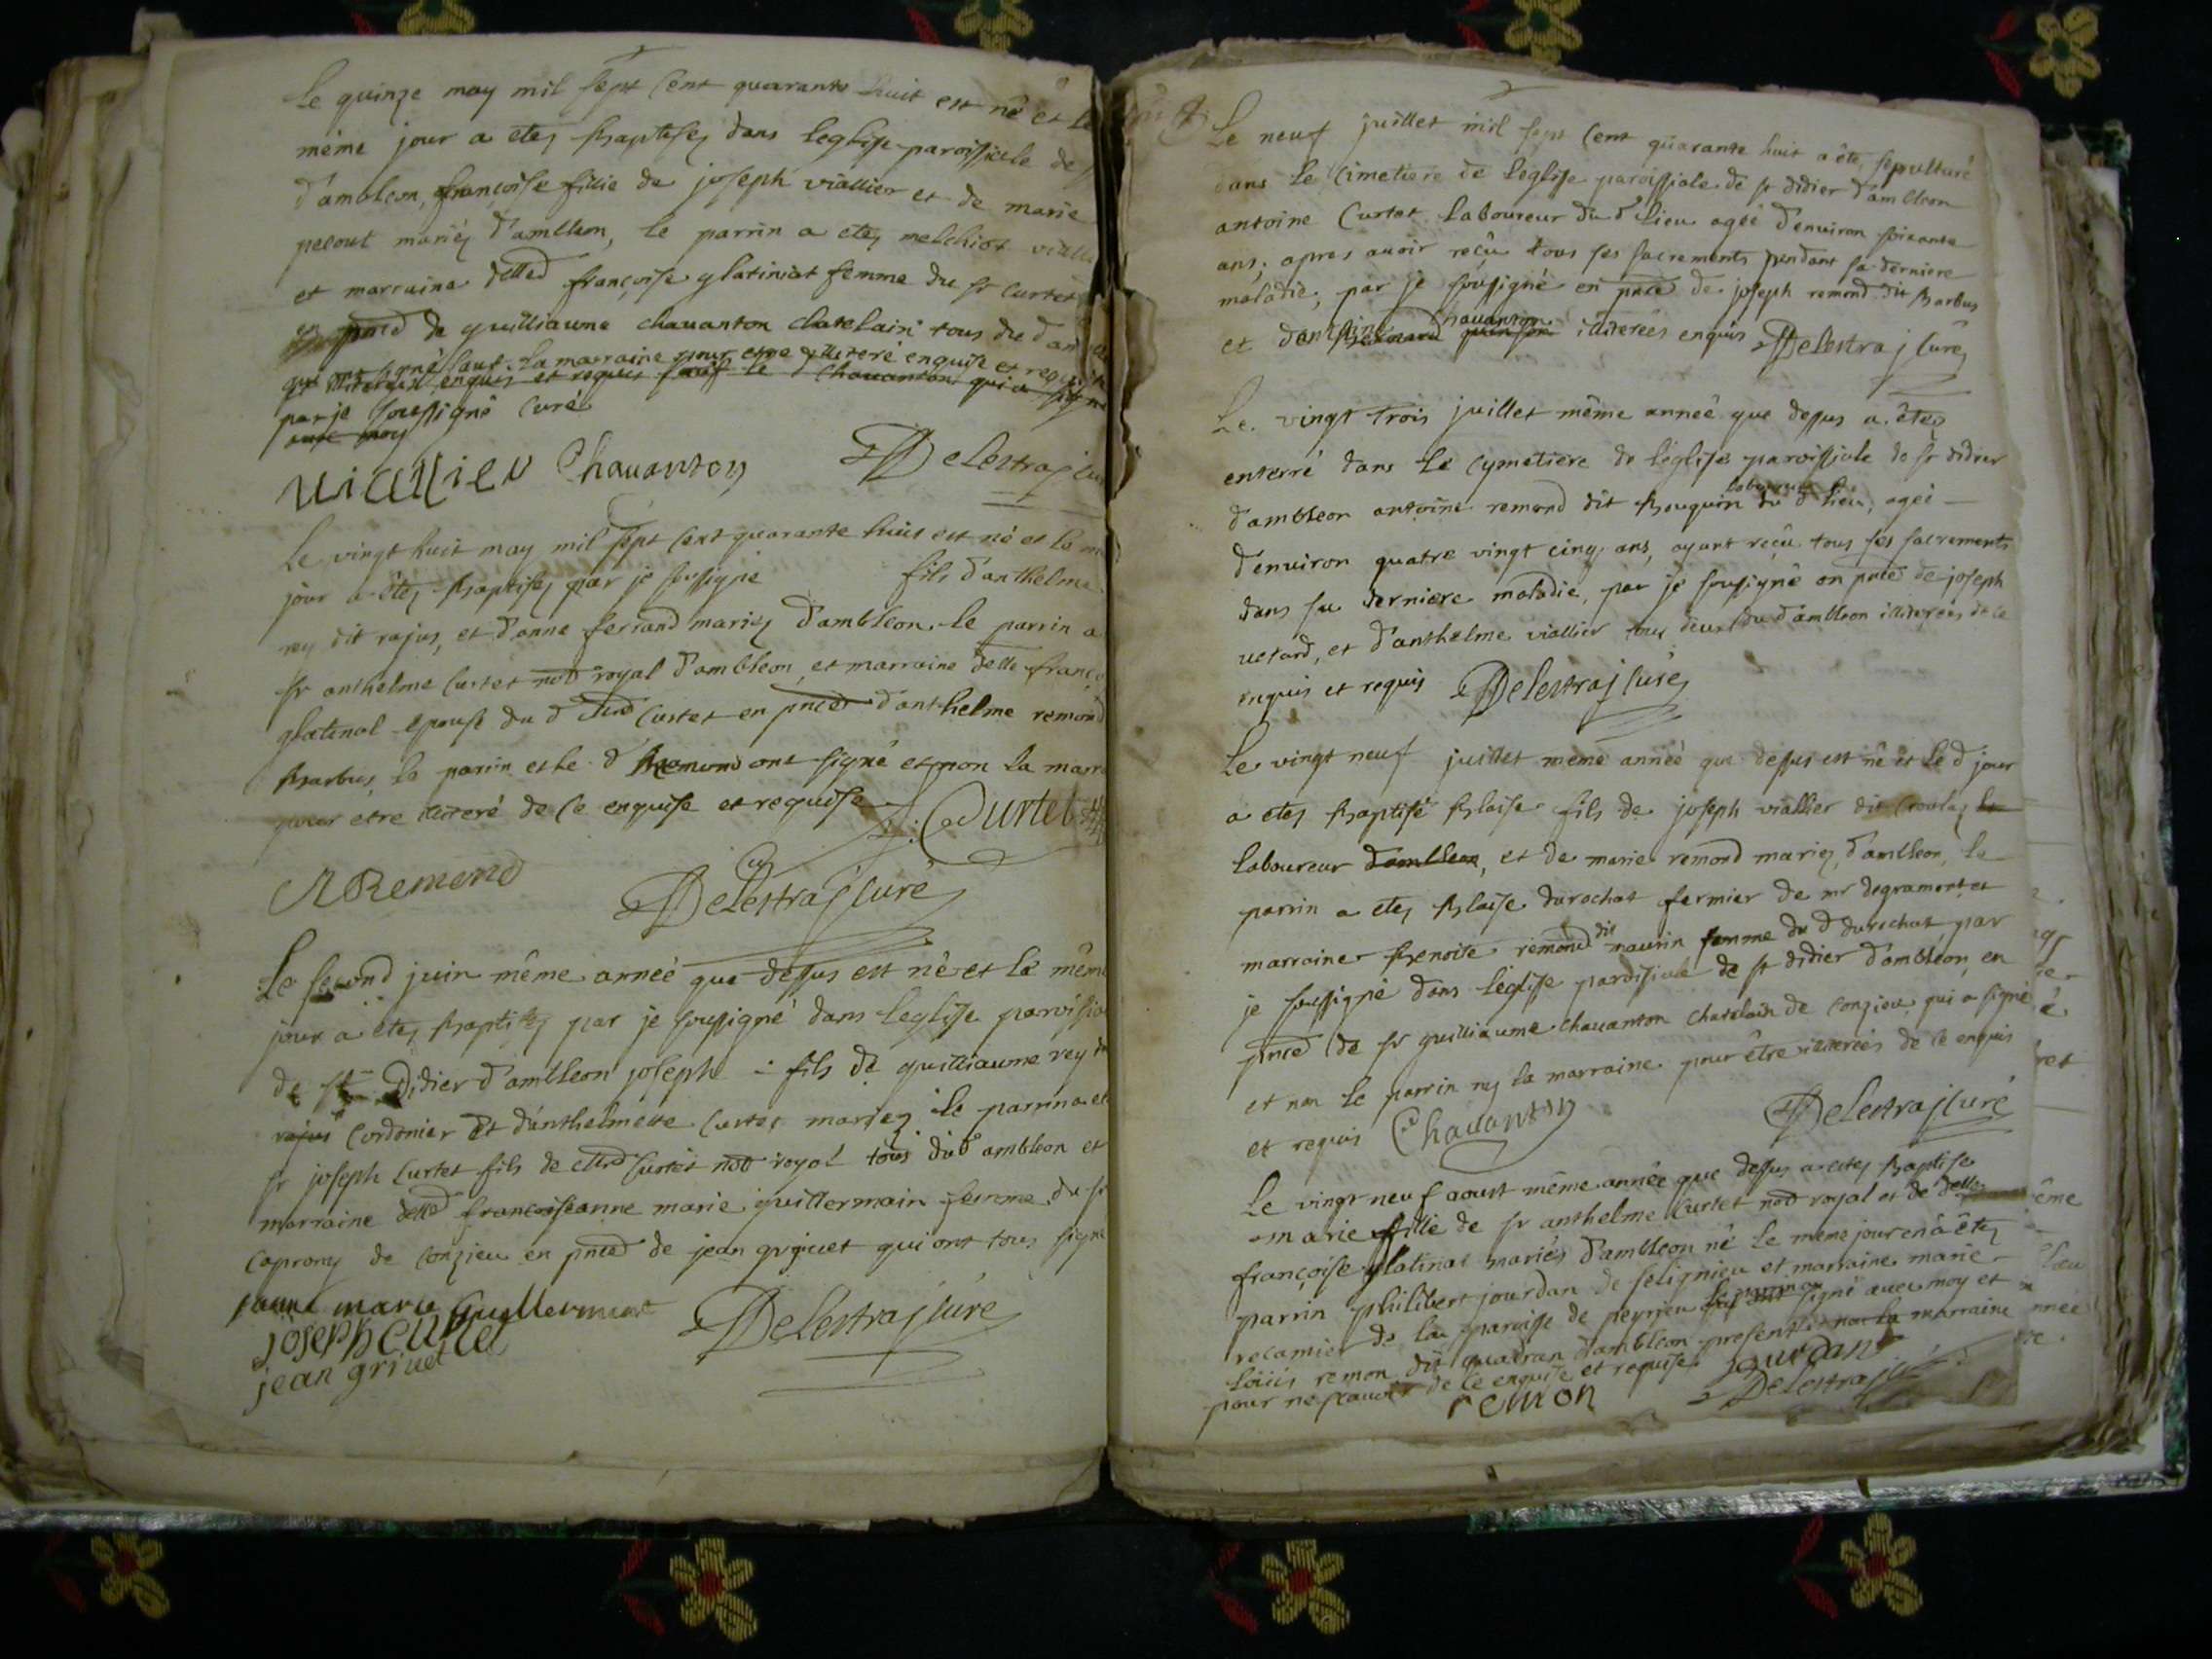 Le quinze may mil sept cent quarante huit est né et le
même jour a etez baptisez dans leglise paroissiale de
d'ambleon, françoise fillie de joseph viallier et de marie
pelout mariéz d'ambleon, le parrin a etez melchiot vialli
et marraine delle françoise glatiniat femme du sr curtet
pnce de guilliaume chauanton chatelain tous du d am
qui ont signé sauf la marraine pour etre illiteré enquise et requise
enquis et requis sauf le d chauanton qui a signé
par je soussigné curé
auec moy
uiallieu Chauanton Delestraz cu
Le vingt huit may mil sept cent quarante huit est né et le m
jour a étez baptisez par je sousigné fils d'anthelme
rey dit rajus, et d'anne ferrand mariez d'ambleon. le parrin a
sr anthelme curtet not royal d'ambleon, et marraine delle franço
glatinal epouse du d curtet en pnce d'anthelme remond
barbus, le parrin et le d Remond ont signé et non la marr
pour etre illiteré de ce enquise et requise Curtet
A Remond Delestraz curé
Le second juin même année que dessus est né et le même
jour a etez baptisez par je sousigné dans leglise paroissia
de st Didier d'ambleon joseph fils de guilliaume rey
rajus cordonier et d'anthelmette curtet mariez le parrin a et
sr joseph curtet fils de curtet not royal tous du d ambleon et
marraine delle françoise anne marie guillermain femme du sr
caprony de conzieu en pnce de jean griuet qui ont tous signe
anne marie guillermint
joseph curtet Delestraz curé
jean griuet
Le neuf juillet mil sept cent quarante huit a été sepulturé
dans le cimetiere de leglise paroissiale de st didier d'ambleon
antoine Curtet laboureur du d lieu agéé d'enuiron soixante
ans, apres auoir reçu tous ses sacrements pendant sa derniere
maladie, par je sousigné en pnce de joseph remond dit barbus
chauanton
et d'anthelme illiterées enquis Delestraz curé
Le vingt trois juillet même année que dessus a étez
enterré dans le cymetiere de léglise paroissiale de st didier
laboureur
d'ambleon antoine remond dit bouquin du d lieu, agéé
d'enuiron quatre vingt cinq ans, ayant reçu tous ses sacrements
dans sa derniere maladie, par je sousigné en pnce de joseph
uetard, et d'anthelme viallier tous deux du d'ambleon illiterées de ce
enquis et requis Delestraz curé
Le vingt neuf juillet même année que dessus est né et le d jour
a etez baptisé blaise fils de joseph viallier dit
laboureur d'ambleon, et de marie remond mariez d'ambleon, le
parrin a etez blaise durochat fermier de mr degramont et
dit
marraine benoite remond maurin femme du d durochat par
je soussigné dans léglise paroissiale de st didier d'ambléon, en
pnce de sr guilliaume chauanton chatelain de conzieu qui a signé
et non le parrin ny la marraine pour être illiterées de ce enquis
et requis Chauanton Delestraz curé
Le vingt neuf aoust même année que dessus a etez baptisé
marie fillie de sr anthelme Curtet not royal et de delle
françoise glatinat mariés d'ambleon né le même jour en a étez
parrin philibert jourdan de selignieu et marraine marie
recamier de la paroisse de peyrieu le parrin a signé auec moy et
loüis remon dit quadran d'ambleon present non la marraine
pour ne sçauoir de ce enquise et requise jourdan
remon Delestraz